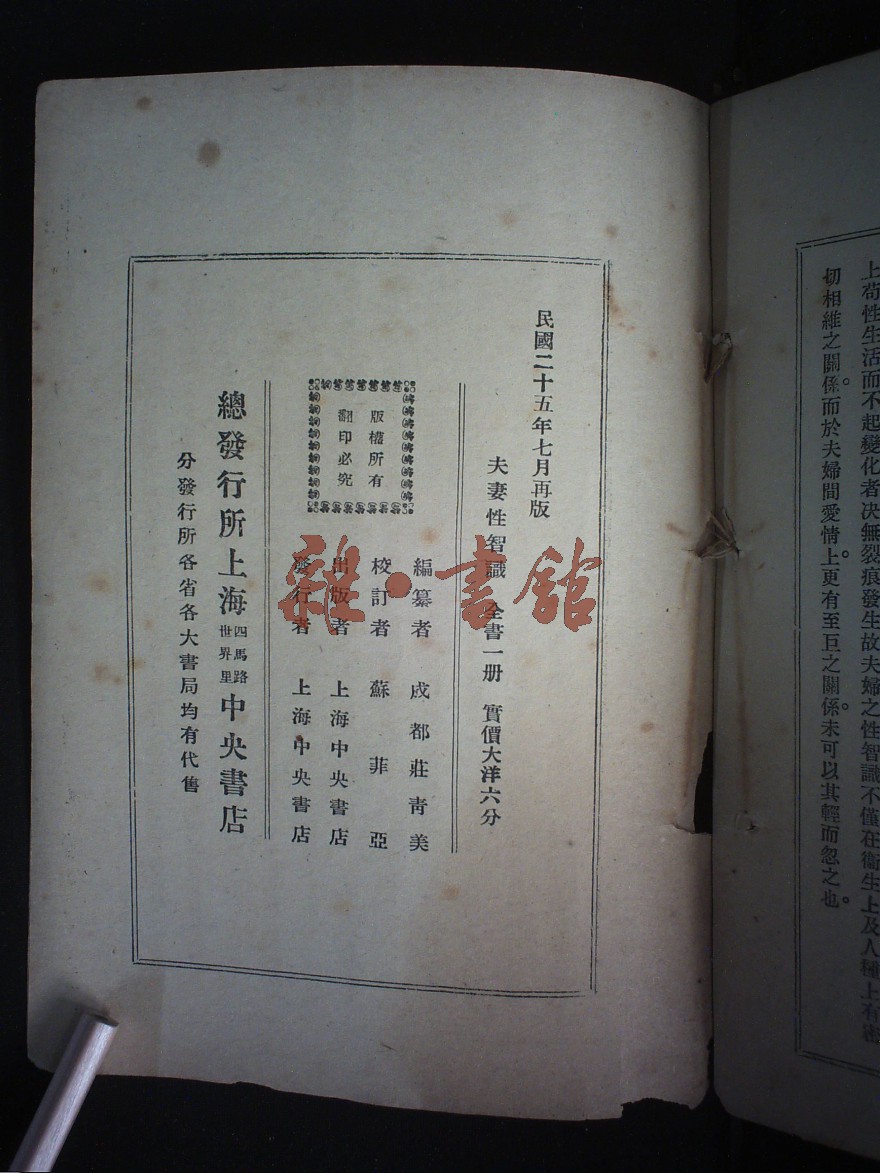 上苟性生活而不起變化者決無裂痕發生故夫婦之性智識不僅在衞生上及人種上有密
切相維之關係。而於夫婦間愛情上。更有至巨之關係。未可以其輕而忽之也。
民國二十五年七月再版
夫妻性智識 全書一册 實價大洋六分
編纂者 成都莊青美
校訂者 蘇菲亞
出版者 上海中央書店
發行者 上海中央書店
版權所有
翻印必究
總發行所上海四馬路世界里中央書店
分發行所各省各大書局均有代售
雜·書館